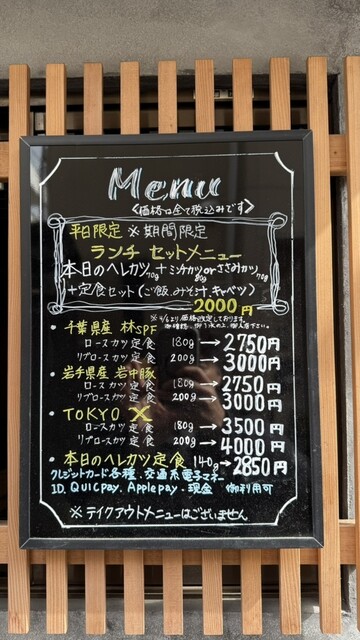 Menu
<価格は全て税込みです>
平日限定 ※期間限定
ランチ セットメニュー
本日のヘレカツ70g+ミンチカツorささみカツ
+定食セット(ご飯、みそ汁、キャベツ)
2000円
・千葉県産 林SPF
ロースカツ定食 180g→2750円
リブロースカツ定食 200g→3000円
・岩手県産 岩中豚
ロースカツ定食 180g→2750円
リブロースカツ定食 200g→3000円
・TOKYO X
ロースカツ定食 180g→3500円
リブロースカツ定食 200g→4000円
・本日のヘレカツ定食 140g→2850円
クレジットカード各種、交通系電子マネー
ID、QUICpay、Applepay、現金 御利用可
※テイクアウトメニューはございません